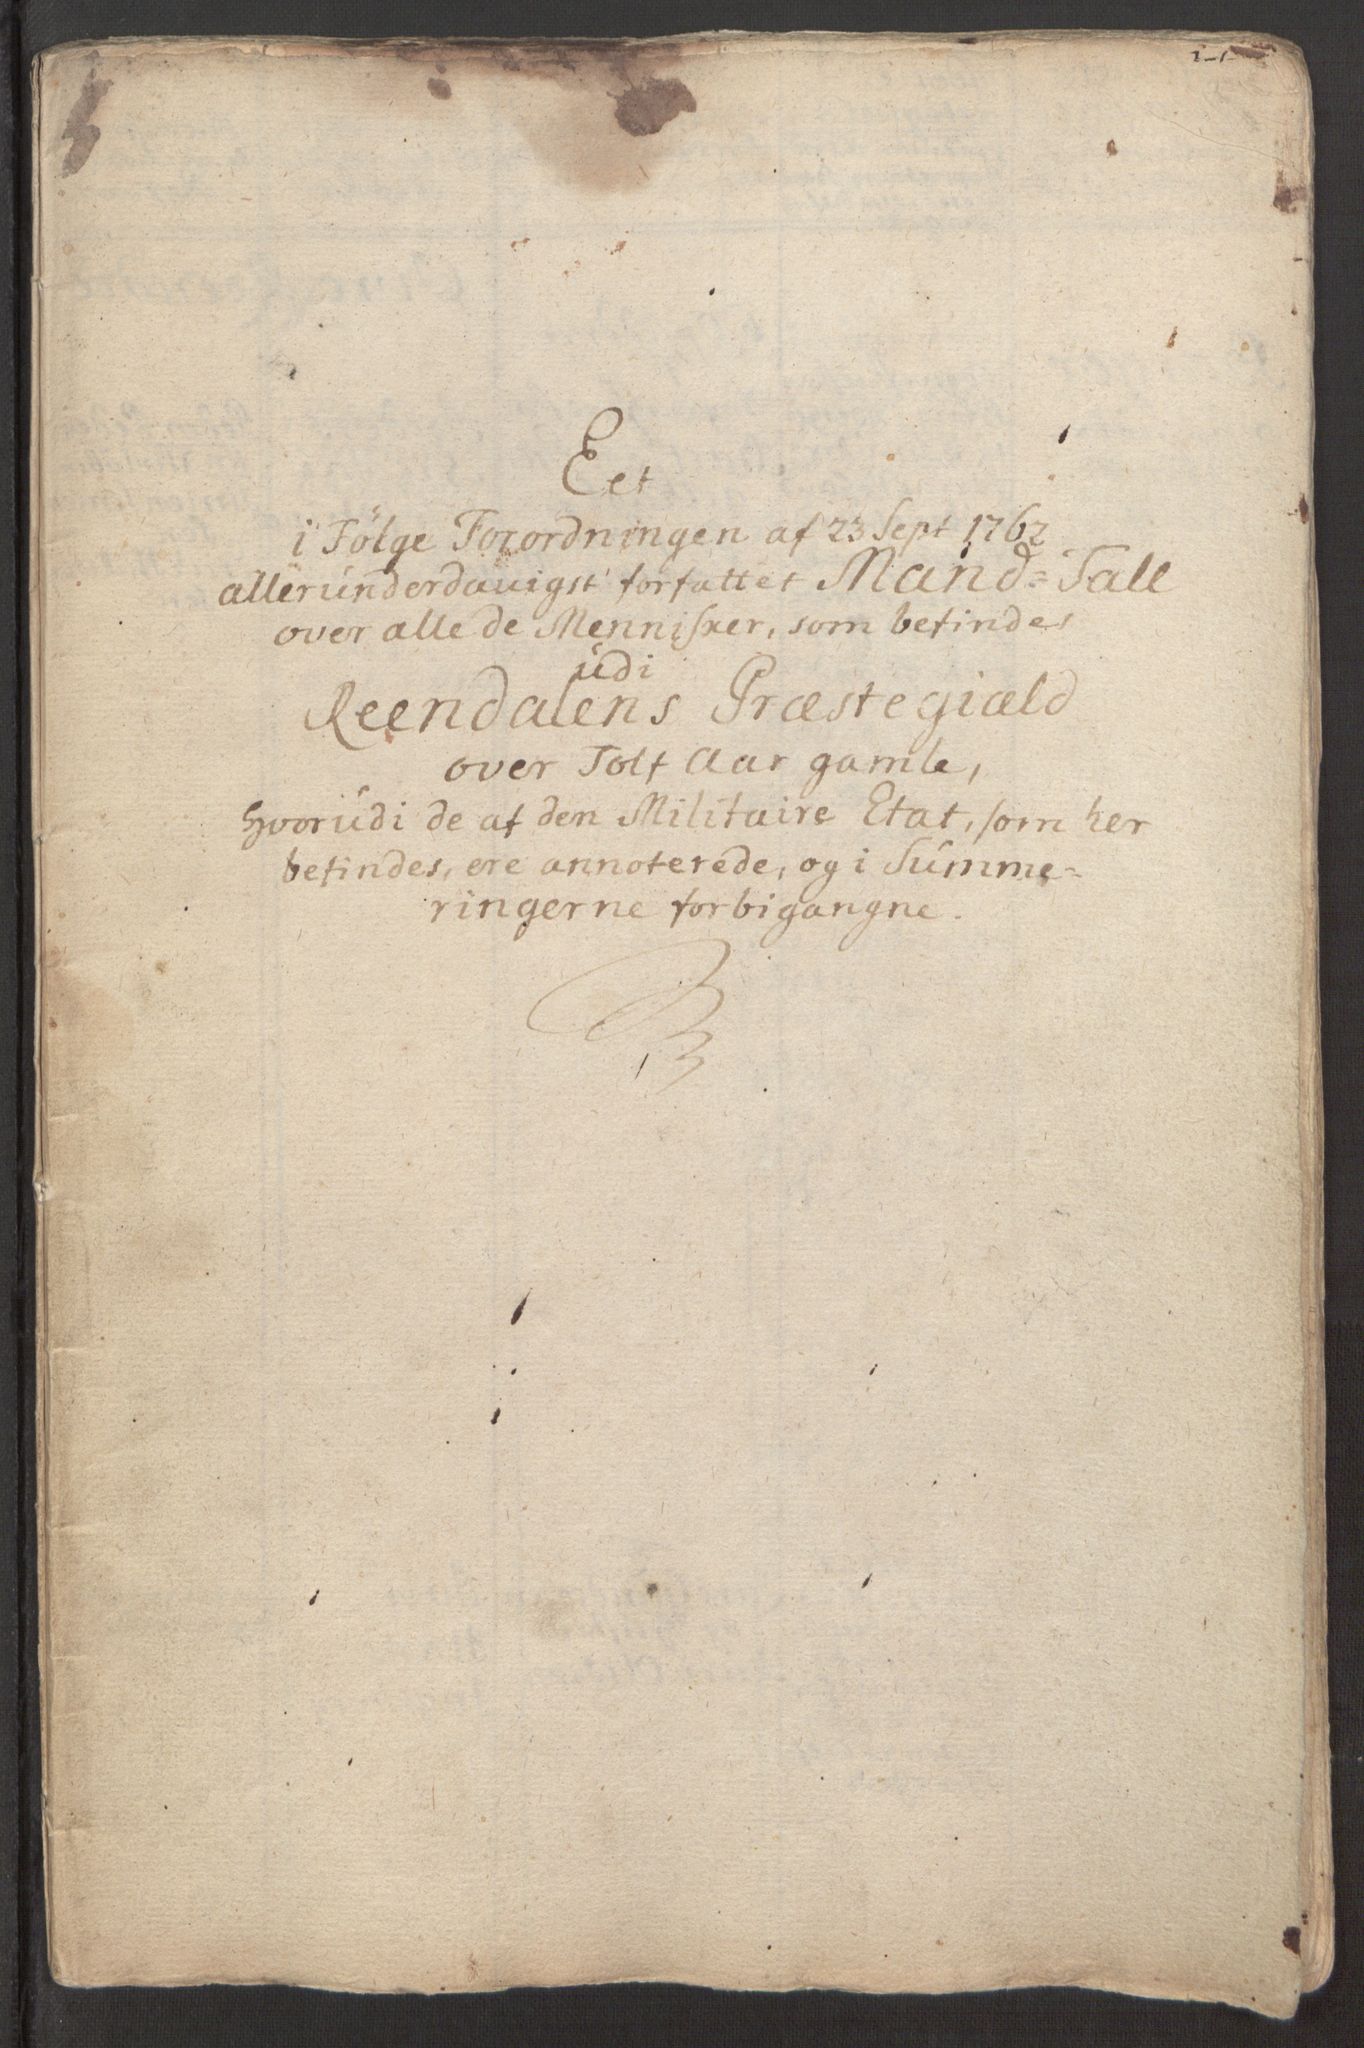 Eet
i Fölge Forordningen af 23 Sept 1762
allerúnderdanigst forfattet Mand=Tall
over alle de Mennisker, som befindes
údi
Reendalens Præstegiæld
over Tolf Aar gamle,
Hvorúdi de af den Militaire Etat, som her
befindes, ere annoterede, og i Súmme=
ringerne forbigangne.